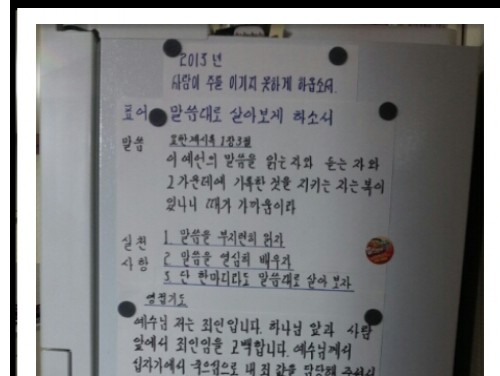 2015년
사람이 주를 이기지 못하게 하옵소서.
표어 말씀대로 살아보게 하소서
말씀 요한계시록 1장3절
이 예언의 말씀을 읽는 자와 듣는 자와
그 가운데에 기록한 것을 지키는 자는 복이
있나니 때가 가까움이라
실천 1 말씀을 부지런히 읽자
사항 2 말씀을 열심히 배우자
3 단 한마디라도 말씀대로 살아 보자
영접기도
예수님 저는 죄인입니다. 하나님 앞과 사람
앞에서 죄인임을 고백합니다. 예수님께서
십자가에서 죽으심으로 내 죄 값을 담당해 주셔서